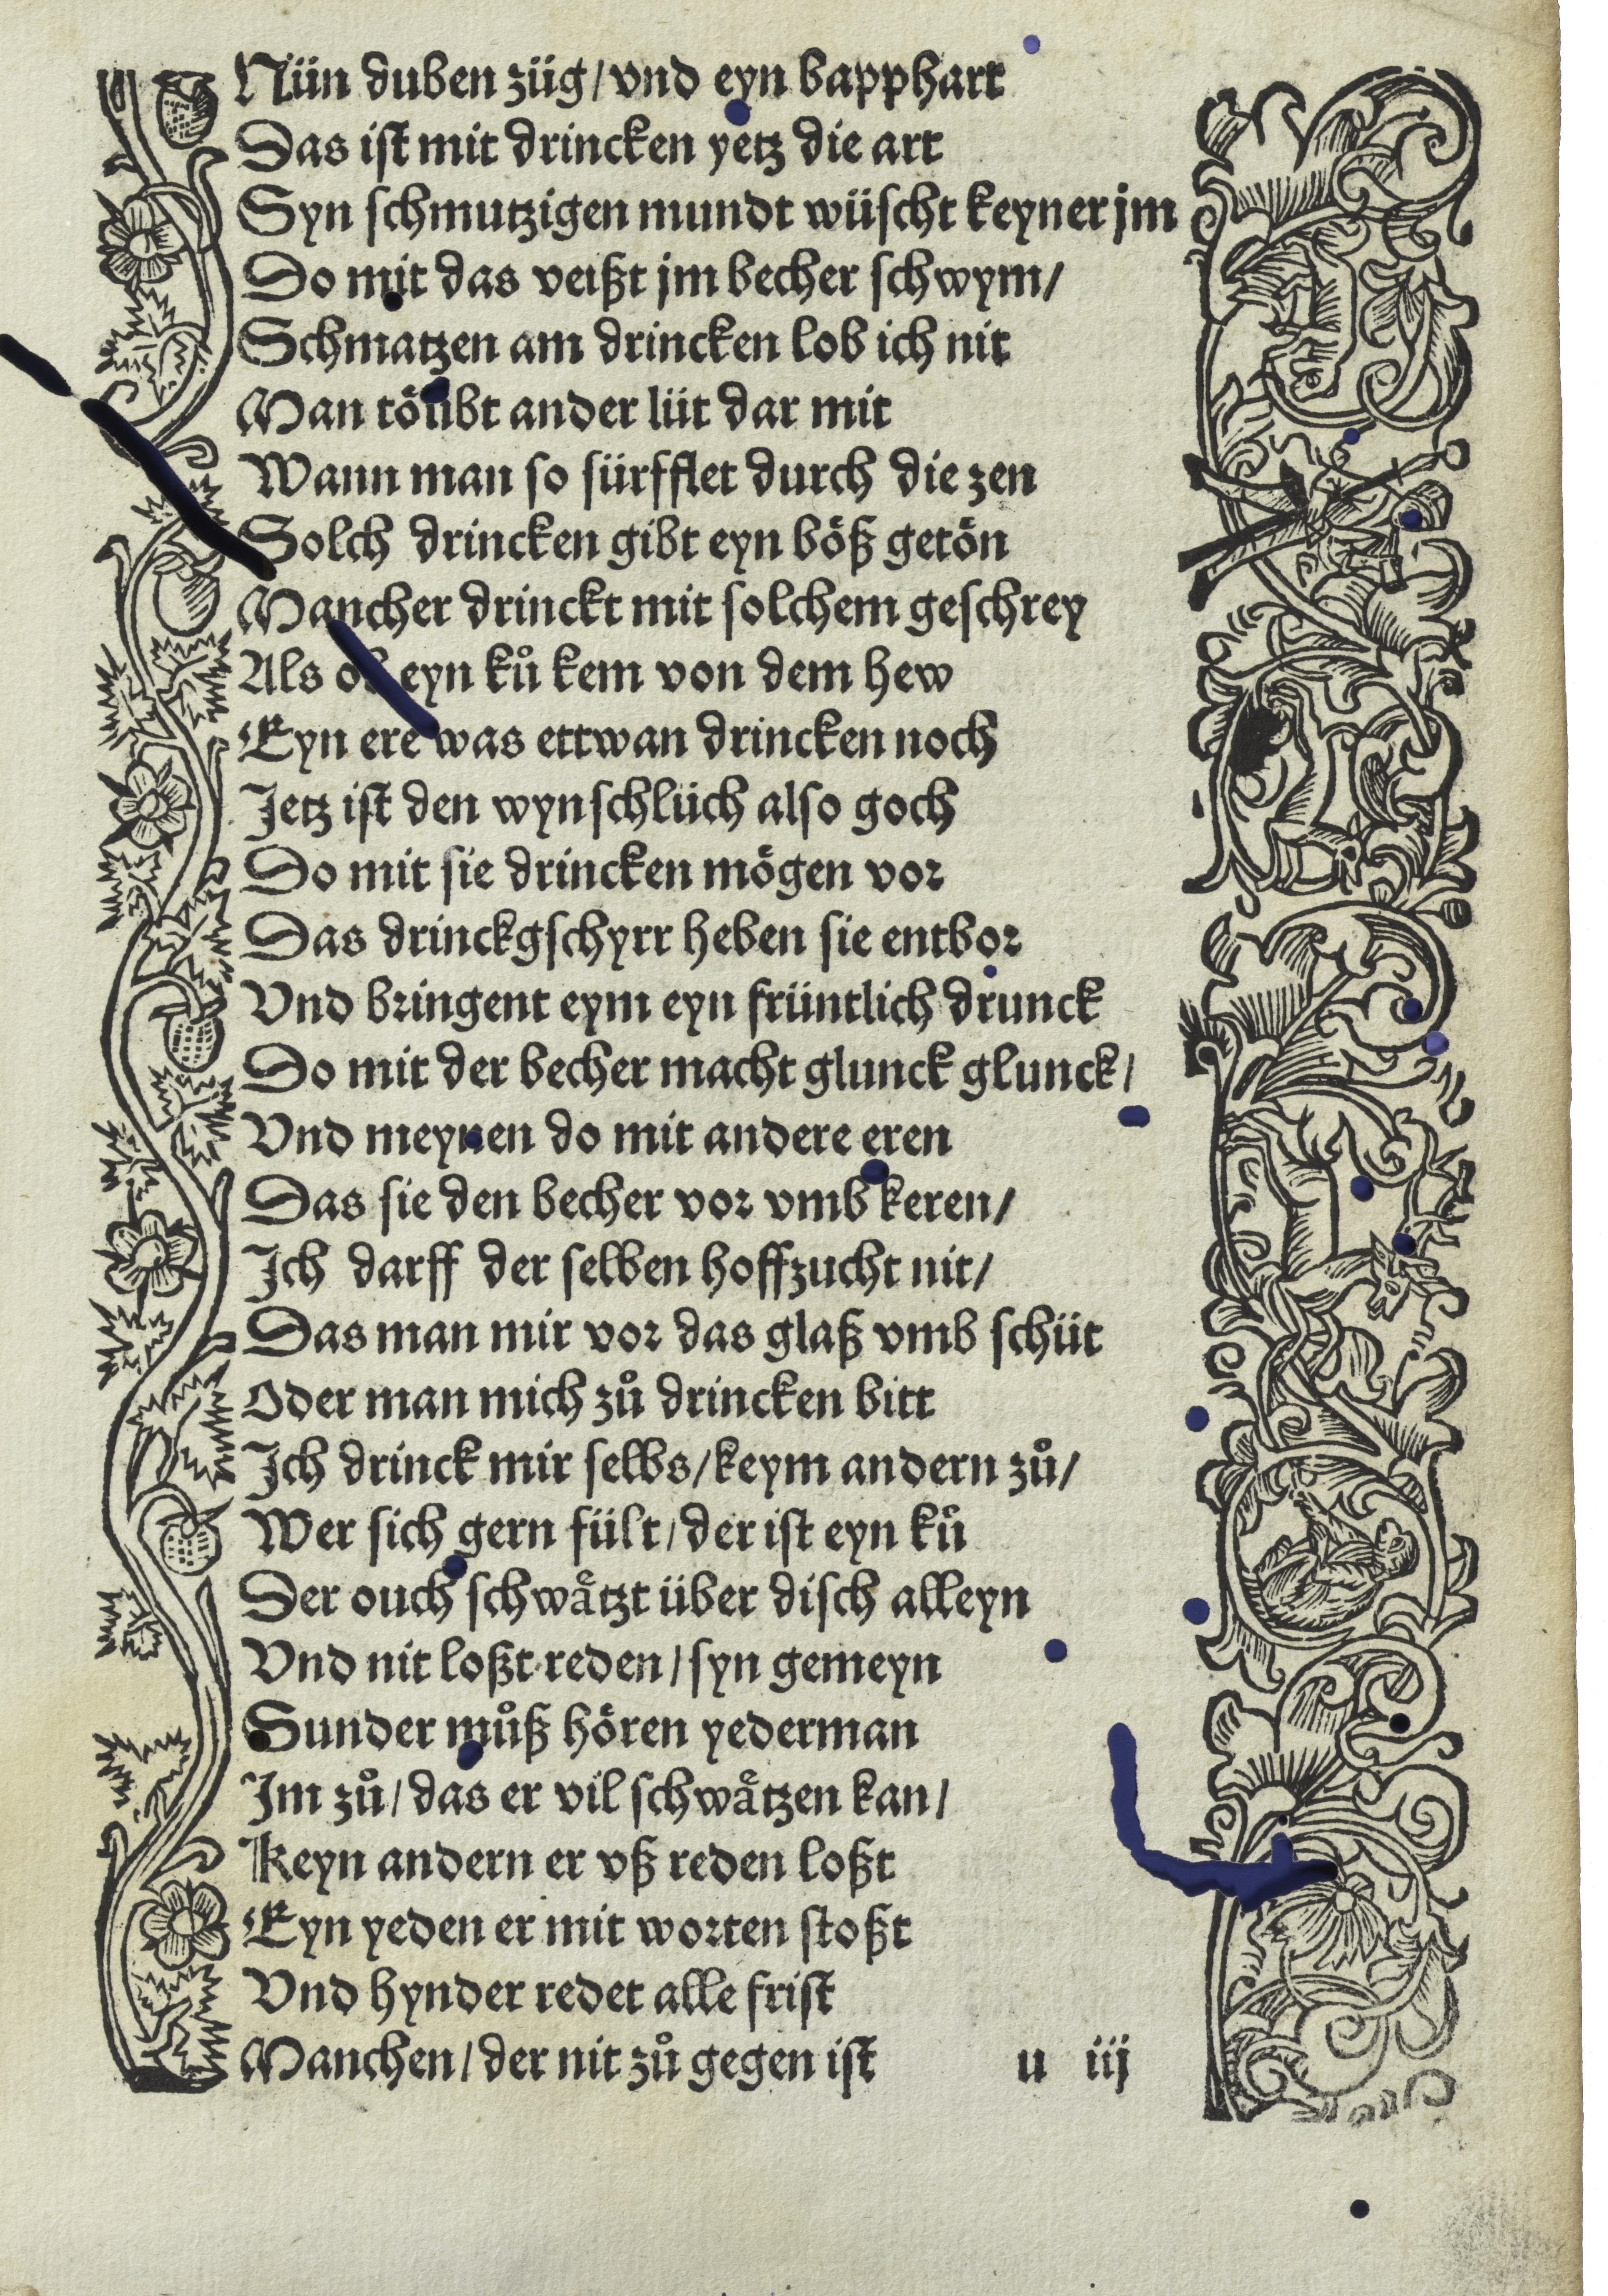 Nün duben züg / vnd eyn bapphart
Das ist mit drincken yetz die art
Syn schmutzigen mundt wüscht keyner jm
Do mit das veißt jm becher schwym /
Schmatzen am drincken lob ich nit
Man toͤubt ander lüt dar mit
Wann man so sürfflet durch die zen
Solch drincken gibt eyn boͤß getoͤn
Mancher drinckt mit solchem geschrey
Als ob eyn kuͦ kem von dem hew
Eyn ere was ettwan drincken noch
Jetz ist den wynschlüch also goch
Do mit sie drincken moͤgen vor
Das drinckgschyrr heben sie entbor
Vnd bringent eym eyn früntlich drunck
Do mit der becher macht glunck glunck /
Vnd meynen do mit andere eren
Das sie den becher vor vmb keren /
Jch darff der selben hoffzucht nit /
Das man mir vor das glaß vmb schüt
Oder man mich zuͦ drincken bitt
Jch drinck mir selbs / keym andern zuͦ /
Wer sich gern fült / der ist eyn kuͦ
Der ouch schwaͤtzt über disch alleyn
Vnd nit loßt reden / syn gemeyn
Sunder muͦß hoͤren yederman
Jm zuͦ / das er vil schwaͤtzen kan /
Keyn andern er vß reden loßt
Eyn yeden er mit worten stoßt
Vnd hynder redet alle frist
Manchen / der nit zuͦ gegen ist u iij